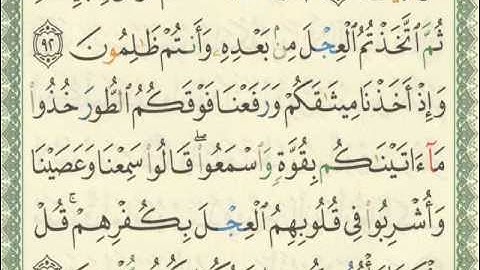 ثُمَّ ٱتَّخَذْتُمُ ٱلْعِجْلَ مِنۢ بَعْدِهِۦ وَأَنتُمْ ظَٰلِمُونَ ٩٢
وَإِذْ أَخَذْنَا مِيثَٰقَكُمْ وَرَفَعْنَا فَوْقَكُمُ ٱلطُّورَ خُذُوا۟
مَآ ءَاتَيْنَٰكُم بِقُوَّةٍ وَٱسْمَعُوا۟ ۖ قَالُوا۟ سَمِعْنَا وَعَصَيْنَا
وَأُشْرِبُوا۟ فِى قُلُوبِهِمُ ٱلْعِجْلَ بِكُفْرِهِمْ ۚ قُلْ